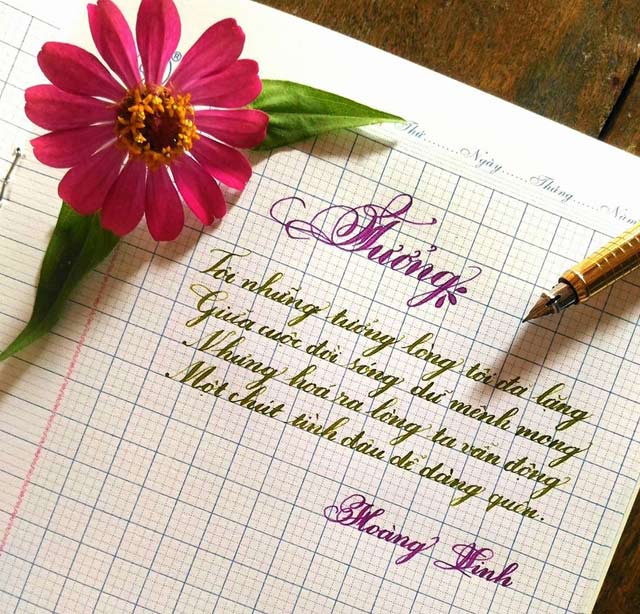 ®
Thứ......Ngày......Tháng......Nă
Tưởng
Tôi những tưởng lòng tôi đã lặng
Giữa cuộc đời sóng dữ mênh mông
Nhưng hoá ra lòng ta vẫn động
Một chút tình đâu dễ dàng quên.
Hoàng